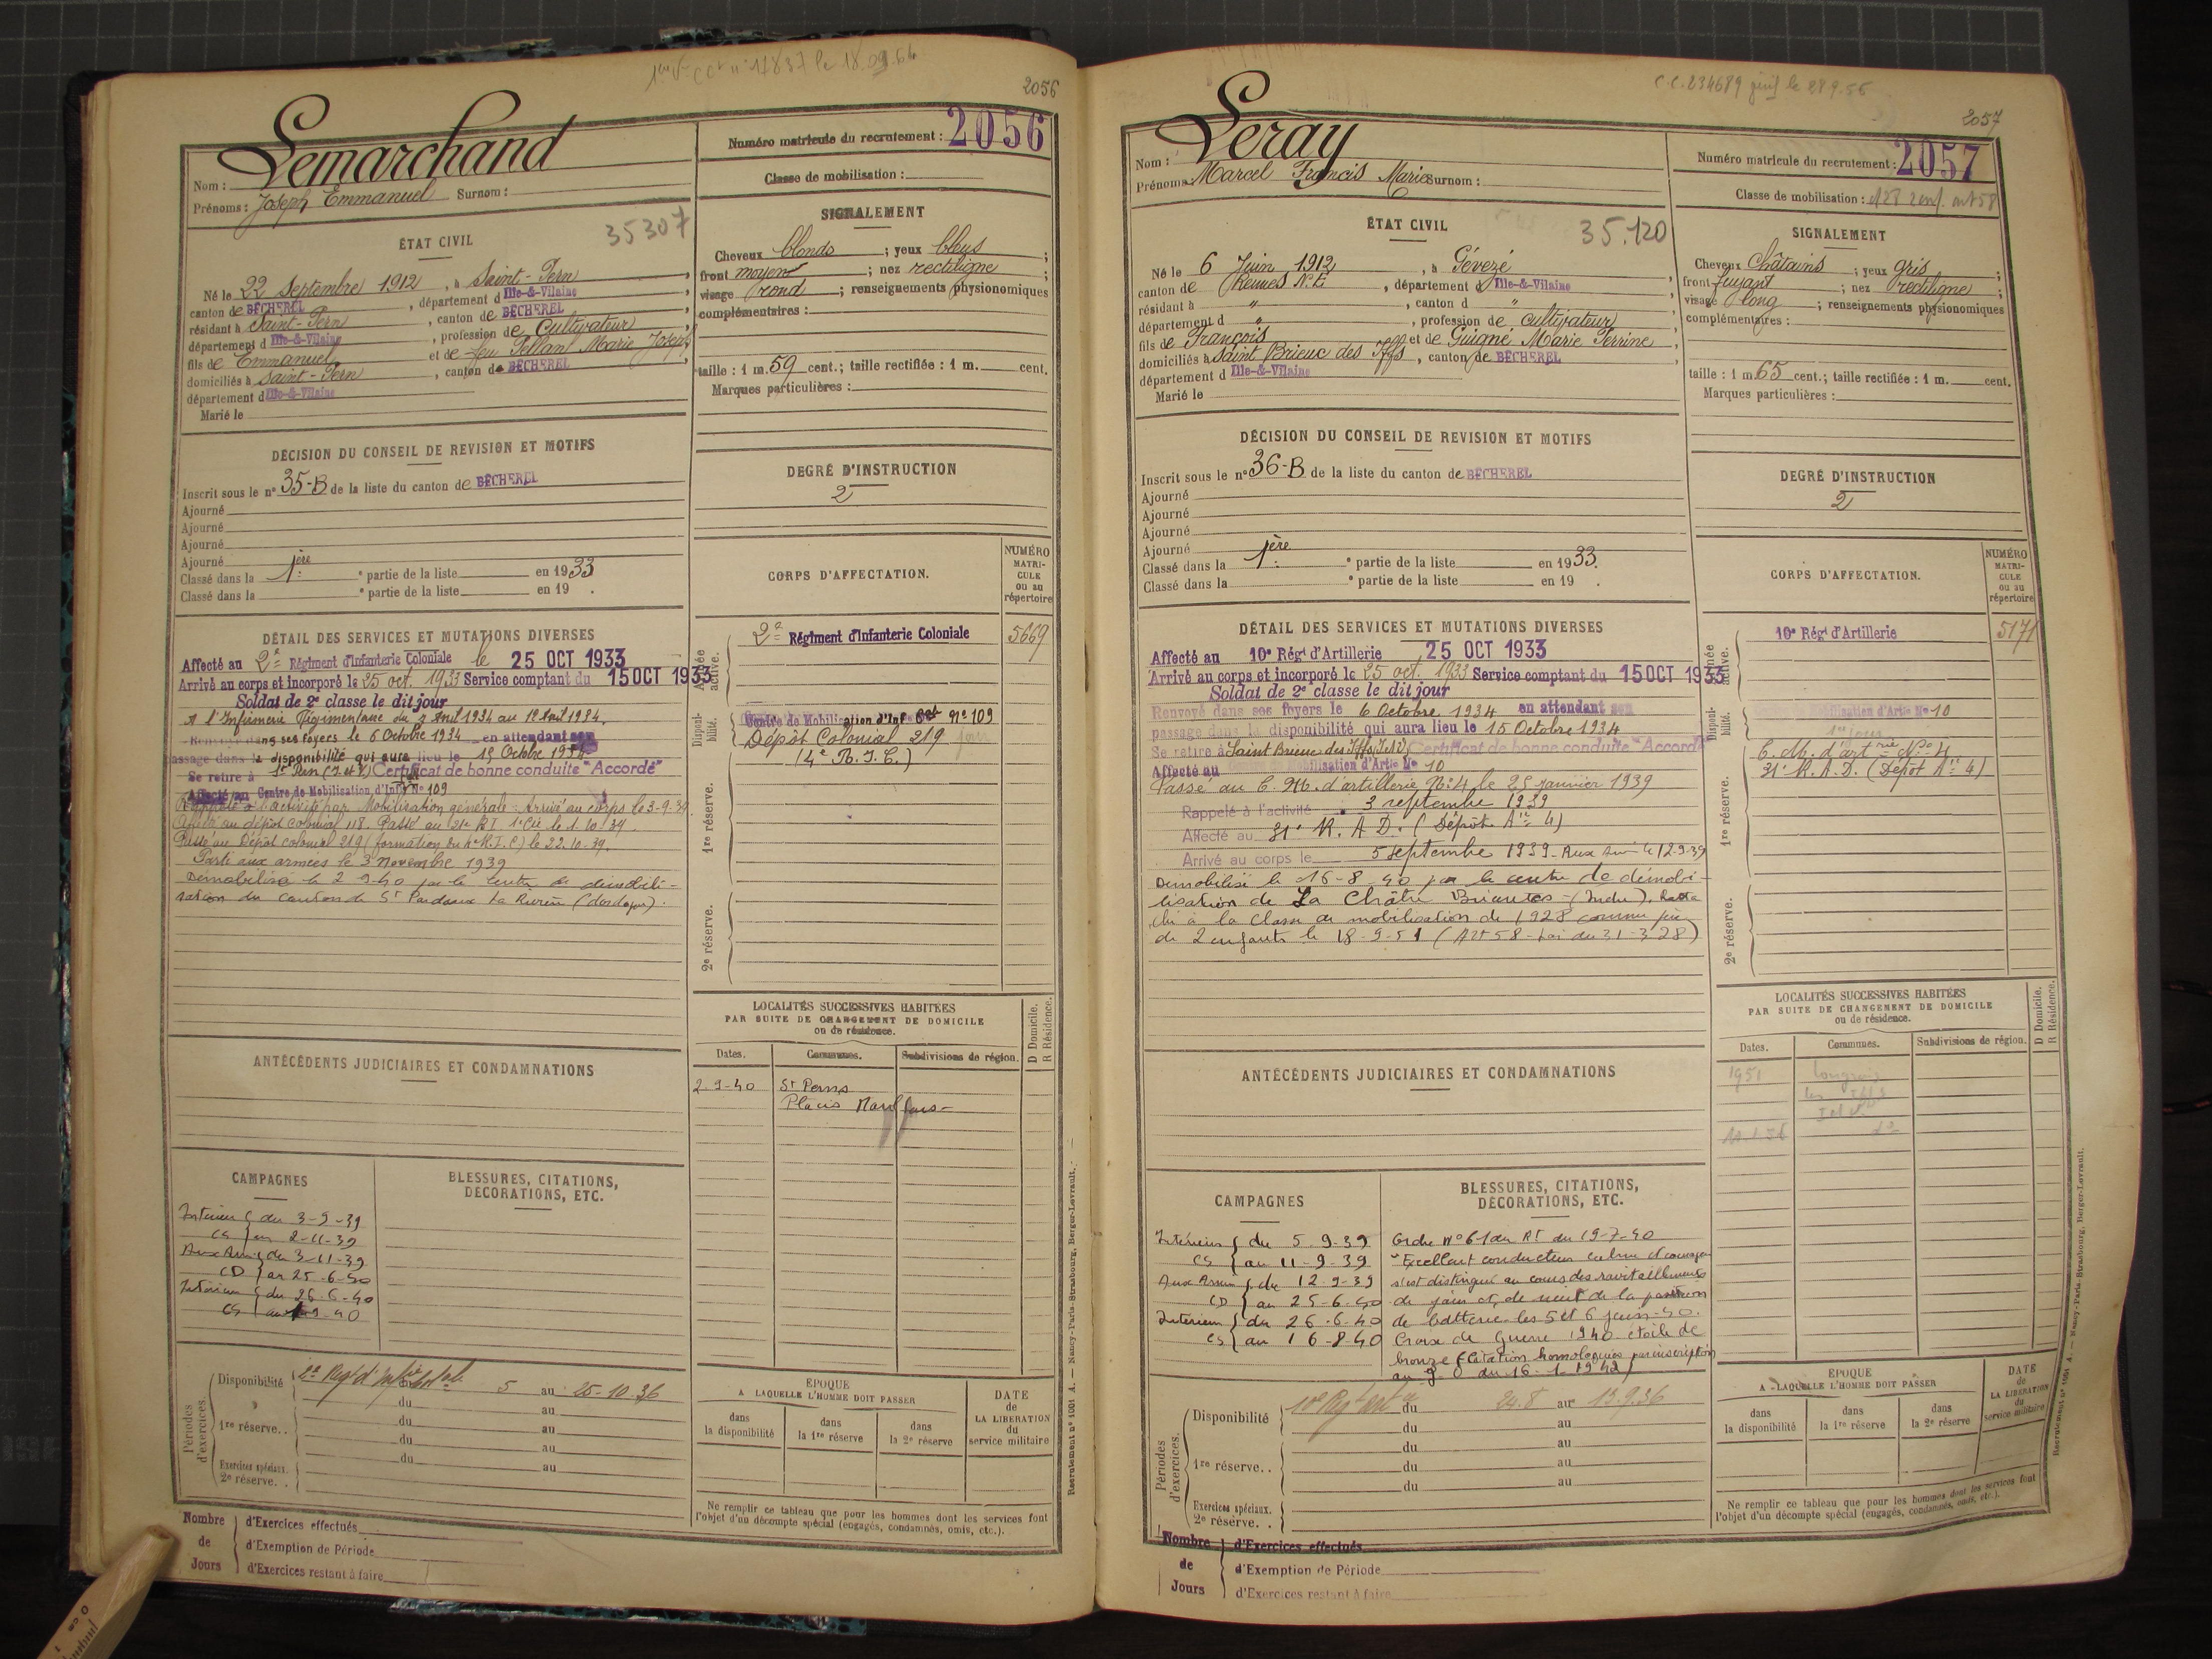 2056
Lemarchand
Nom :
Prénoms : Joseph Emmanuel Surnom :
Numéro matricule du recrutement : 2056
Classe de mobilisation :
ÉTAT CIVIL
35307
Né le 22 Septembre 1912, à Saint-Pern
canton de BÉCHEREL, département d Ille-&-Vilaine
résidant à Saint-Pern, canton de BÉCHEREL
département d Ille-&-Vilaine, profession de Cultivateur
fils de Emmanuel et de feu Pellan Marie Joseph
domiciliés à Saint-Pern, canton de BÉCHEREL
département d Ille-&-Vilaine
Marié le
SIGNALEMENT
Cheveux blonds ; yeux bleus ;
front moyen ; nez rectiligne ;
visage rond ; renseignements physionomiques
complémentaires :
taille : 1 m. 59 cent.; taille rectifiée : 1 m. cent.
Marques particulières :
DÉCISION DU CONSEIL DE REVISION ET MOTIFS
Inscrit sous le n° 35-B de la liste du canton de BÉCHEREL
Ajourné
Ajourné
Ajourné
Ajourné
Classé dans la 1ère e partie de la liste en 1933
Classé dans la e partie de la liste en 19 .
DEGRÉ D'INSTRUCTION
2
CORPS D'AFFECTATION.
NUMÉRO MATRI-CULE ou au répertoire
DÉTAIL DES SERVICES ET MUTATIONS DIVERSES
Affecté au 2e Régiment d'Infanterie Coloniale le 25 OCT 1933
Arrivé au corps et incorporé le 25 oct. 1933 Service comptant du 15 OCT 1933
Soldat de 2e classe le dit jour
A l'Infirmerie Régimentaire du 3 Avril 1934 au 12 Avril 1934.
Renvoyé dans ses foyers le 6 Octobre 1934 en attendant son
passage dans la disponibilité qui aura lieu le 15 Octobre 1934
Se retire à St Pern (I et V) Certificat de bonne conduite "Accordé"
Affecté au Centre de Mobilisation d'Infrie N° 109
Rappelé à l'activité par Mobilisation générale. Arrivé au corps le 3-9-39
Affecté au dépôt colonial 118. Passé au 21e RI 1e Cie le 1.10.39.
Passé au Dépôt colonial 219 (formation du 4e R.I.C.) le 22.10-39.
Parti aux armées le 3 Novembre 1939
Démobilisé le 2 9-40 par le centre de démobili-
sation du canton de St Pardoux la Rivière (dordogne).
Armée active.
2e Régiment d'Infanterie Coloniale 5669
Disponi-bilité.
Centre de Mobilisation d'Inf Col N° 109
Dépôt Colonial 219
(4e R.I.C.)
1re réserve.
2e réserve.
LOCALITÉS SUCCESSIVES HABITÉES
PAR SUITE DE CHANGEMENT DE DOMICILE
ou de résidence.
D Domicile. R Résidence.
Dates. Communes. Subdivisions de région.
2-9-40 St Pern
ANTÉCÉDENTS JUDICIAIRES ET CONDAMNATIONS
CAMPAGNES
Intérieur du 3-9-39
CS au 2-11-39
Aux Armées du 3-11-39
CD au 25-6-40
Intérieur du 26-6-40
BLESSURES, CITATIONS,
DÉCORATIONS, ETC.
Périodes d'exercices.
Disponibilité 5 au 25-10-36
du au
1re réserve. . du au
du au
Exercices spéciaux. du au
2e réserve. .
ÉPOQUE
A LAQUELLE L'HOMME DOIT PASSER
dans la disponibilité
dans la 1re réserve
dans la 2e réserve
DATE de LA LIBÉRATION du service militaire
Ne remplir ce tableau que pour les hommes dont les services font
l'objet d'un décompte spécial (engagés, condamnés, omis, etc.).
Nombre de Jours
d'Exercices effectués
d'Exemption de Période
d'Exercices restant à faire
Recrutement n° 1001 A. — Nancy-Paris-Strasbourg, Berger-Levrault. —
C.C.234689 le 28 9-56
2057
Leray
Nom :
Prénoms : Marcel Francis Marie Surnom :
Numéro matricule du recrutement : 2057
Classe de mobilisation : 28 2 enf. art 58
ÉTAT CIVIL
35.120
Né le 6 Juin 1912, à Gévezé
canton de Rennes N.E, département d Ille-&-Vilaine
résidant à ", canton d "
département d ", profession de cultivateur
fils de François et de Guigné Marie Perrine
domiciliés à Saint Brieuc des Iffs, canton de BÉCHEREL
département d Ille-&-Vilaine
Marié le
SIGNALEMENT
Cheveux Châtains ; yeux gris ;
front fuyant ; nez rectiligne ;
visage long ; renseignements physionomiques
complémentaires :
taille : 1 m. 65 cent.; taille rectifiée : 1 m. cent.
Marques particulières :
DÉCISION DU CONSEIL DE REVISION ET MOTIFS
Inscrit sous le n° 36-B de la liste du canton de BÉCHEREL
Ajourné
Ajourné
Ajourné
Ajourné
Classé dans la 1ère e partie de la liste en 1933.
Classé dans la e partie de la liste en 19 .
DEGRÉ D'INSTRUCTION
2
CORPS D'AFFECTATION.
NUMÉRO MATRI-CULE ou au répertoire
DÉTAIL DES SERVICES ET MUTATIONS DIVERSES
Affecté au 10e Régt d'Artillerie 25 OCT 1933
Arrivé au corps et incorporé le 25 oct. 1933 Service comptant du 15 OCT 1933
Soldat de 2e classe le dit jour
Renvoyé dans ses foyers le 6 Octobre 1934 en attendant son
passage dans la disponibilité qui aura lieu le 15 Octobre 1934
Se retire à Saint Brieuc des Iffs (I et V) Certificat de bonne conduite "Accordé"
Affecté au Centre de Mobilisation d'Artie No 10
Passé au C. M. d'artillerie N° 4 le 25 janvier 1939
Rappelé à l'activité 3 septembre 1939
Affecté au 31e R. A. D. (Dépôt Aie 4)
Arrivé au corps le 5 septembre 1939 - Aux Arm le 12-9-39
Démobilisé le 16-8-40 par le centre de démobi-
lisation de La Châtre Briantes - (Indre). Ratta
ché à la classe de mobilisation de 1928 comme père
de 2 enfants le 18-9-51 (Art 58 - Loi du 31-3 28)
Armée active.
10e Régt d'Artillerie 5171
Disponi-bilité.
Centre de Mobilisation d'Artie No 10
C. M. d'artrie N° 4
31e R. A. D. (Dépôt Aie 4)
1re réserve.
2e réserve.
LOCALITÉS SUCCESSIVES HABITÉES
PAR SUITE DE CHANGEMENT DE DOMICILE
ou de résidence.
D Domicile. R Résidence.
Dates. Communes. Subdivisions de région.
1951
les Iffs
I et V
ANTÉCÉDENTS JUDICIAIRES ET CONDAMNATIONS
CAMPAGNES
Intérieur du 5 9-39
CS au 11-9-39
Aux Armées du 12-9-39
CD au 25-6-40
Intérieur du 26-6-40
CS au 16-8-40
BLESSURES, CITATIONS,
DÉCORATIONS, ETC.
Ordre N° 61 du Rt du 19-7-40
"Excellent conducteur calme et courageux
s'est distingué au cours des ravitaillements
de jour et de nuit de la position
de batterie les 5 et 6 juin-40.
Croix de Guerre 1940 étoile de
bronze (Citation homologuée par inscription
au J. O du 16-1-1942)
Périodes d'exercices.
Disponibilité 10e Régt art du 24.8 au 13.9.36
du au
du au
1re réserve. . du au
du au
Exercices spéciaux.
2e réserve. .
ÉPOQUE
A LAQUELLE L'HOMME DOIT PASSER
dans la disponibilité
dans la 1re réserve
dans la 2e réserve
DATE de LA LIBÉRATION du service militaire
Ne remplir ce tableau que pour les hommes dont les services font
l'objet d'un décompte spécial (engagés, condamnés, omis, etc.).
Nombre de Jours
d'Exercices effectués
d'Exemption de Période
d'Exercices restant à faire
Recrutement n° 1001 A. — Nancy-Paris-Strasbourg, Berger-Levrault.